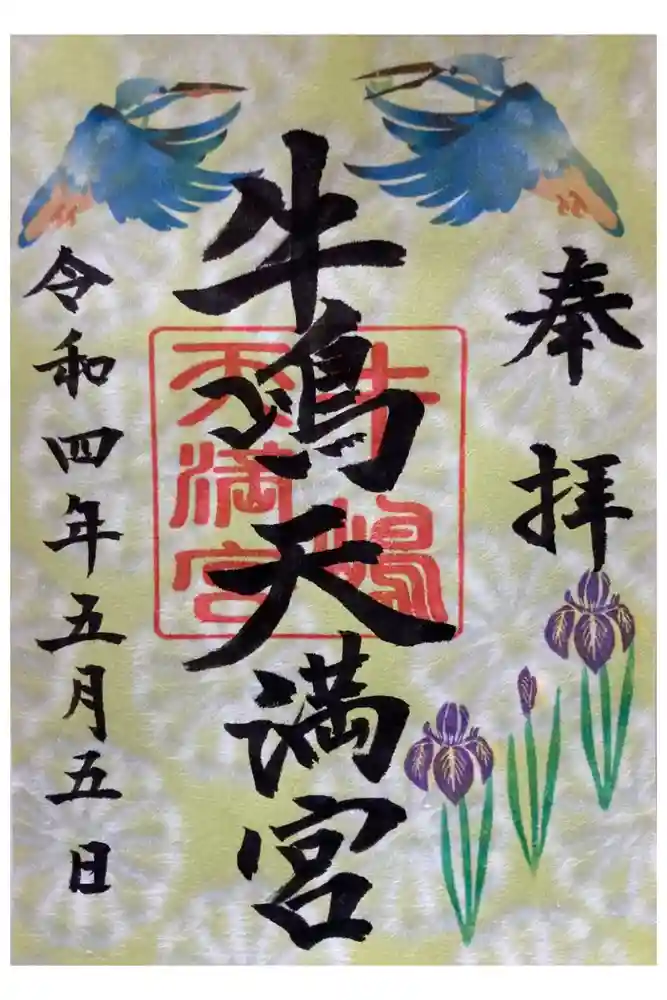 奉拝
牛嶋天満宮
令和四年五月五日
牛嶋
天満宮